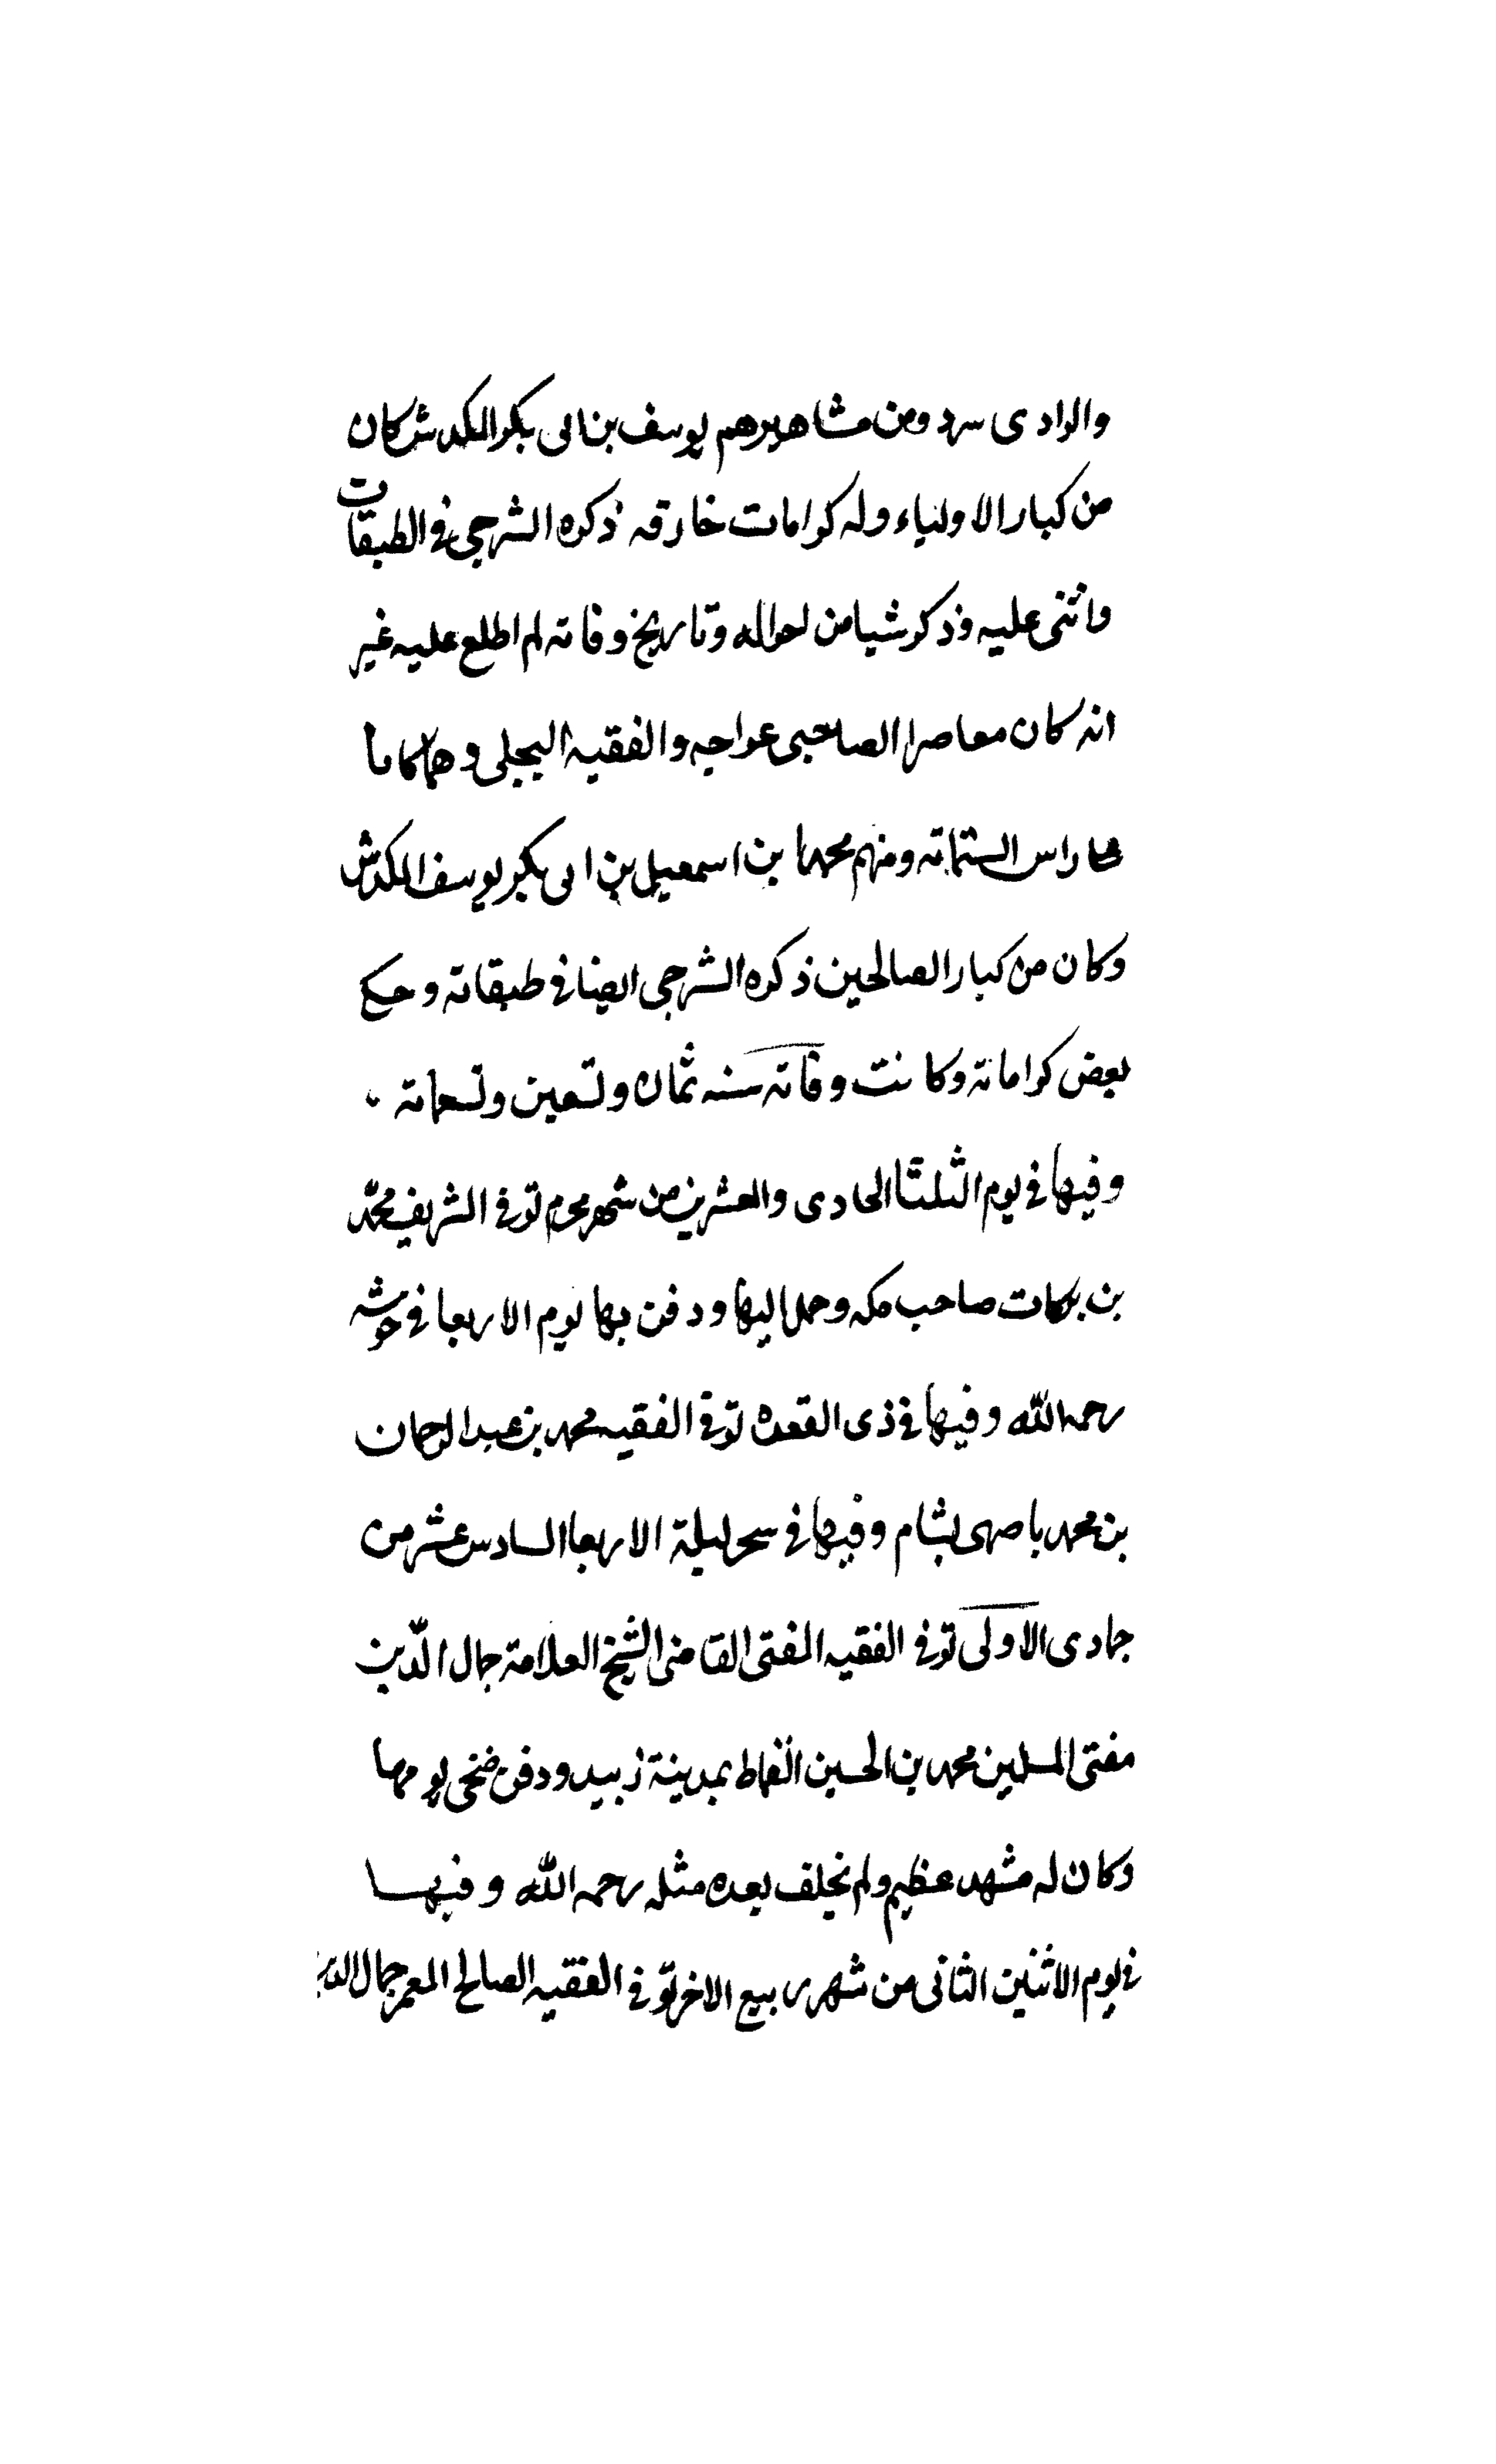 والوادى سردد ومن مشاهيرهم يوسف بن ابى بكر المكدش كان
من كبار الاولياء وله كرامات خارقه ذكره الشرجى فى الطبقات
واثنى عليه وذكر شيا من احواله وتاريخ وفاته لم اطلع عليه غير
انه كان معاصرا لصاحبى عواجه والفقيه البجلى وهما كانا
راس الستمائه ومنهم محمد بن اسمعيل بن ابى بكر يوسف المكدش
وكان من كبار الصالحين ذكره الشرجى ايضا فى طبقاته وحكى
بعض كراماته وكانت وفاته سنه ثمان وتسعين وتسعمائه
وفيها فى يوم الثلثا الحادى والعشرين من شهر محرم توفى الشريف محمّد
بن بركات صاحب مكه وحمل اليها ودفن بها يوم الاربعا فى حوشه
رحمه اللّه وفيها فى ذى القعده توفى الفقيه محمد بن عبد الرحمان
بن محمد باصهى بشبام وفيها فى سحر ليلة الاربعا السادس عشر من
جمادى الاولى توفى الفقيه المفتى القاضى الشيخ العلامة جمال الدّين
مفتى المسلمين محمد بن الحسين القماط بمدينة زبيد ودفن ضحى يومها
وكان له مشهد عظيم ولم يخلف بعده مثله رحمه اللّه وفيها
فى يوم الاثنين الثانى من شهر ربيع الاخر توفى الفقيه الصالح المعمر جمال الدين